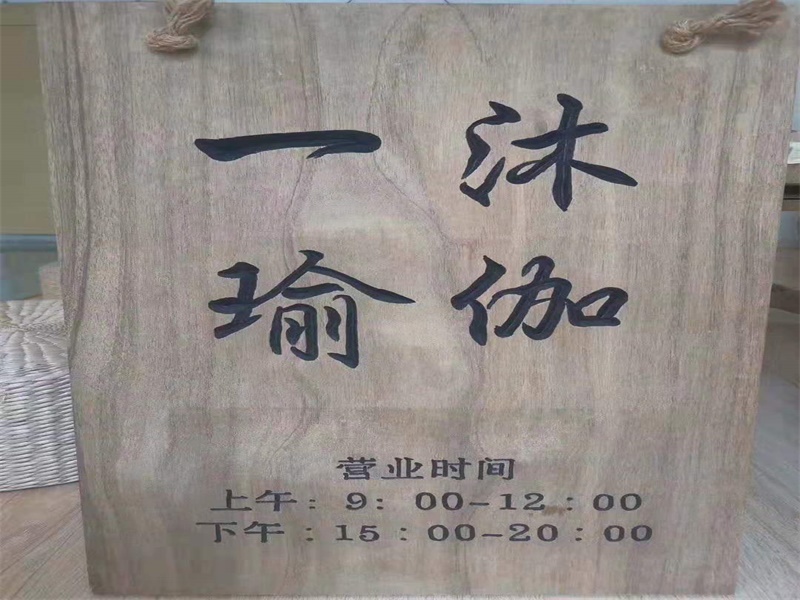 一沐
瑜伽
营业时间
上午：9：00-12：00
下午：15：00-20：00